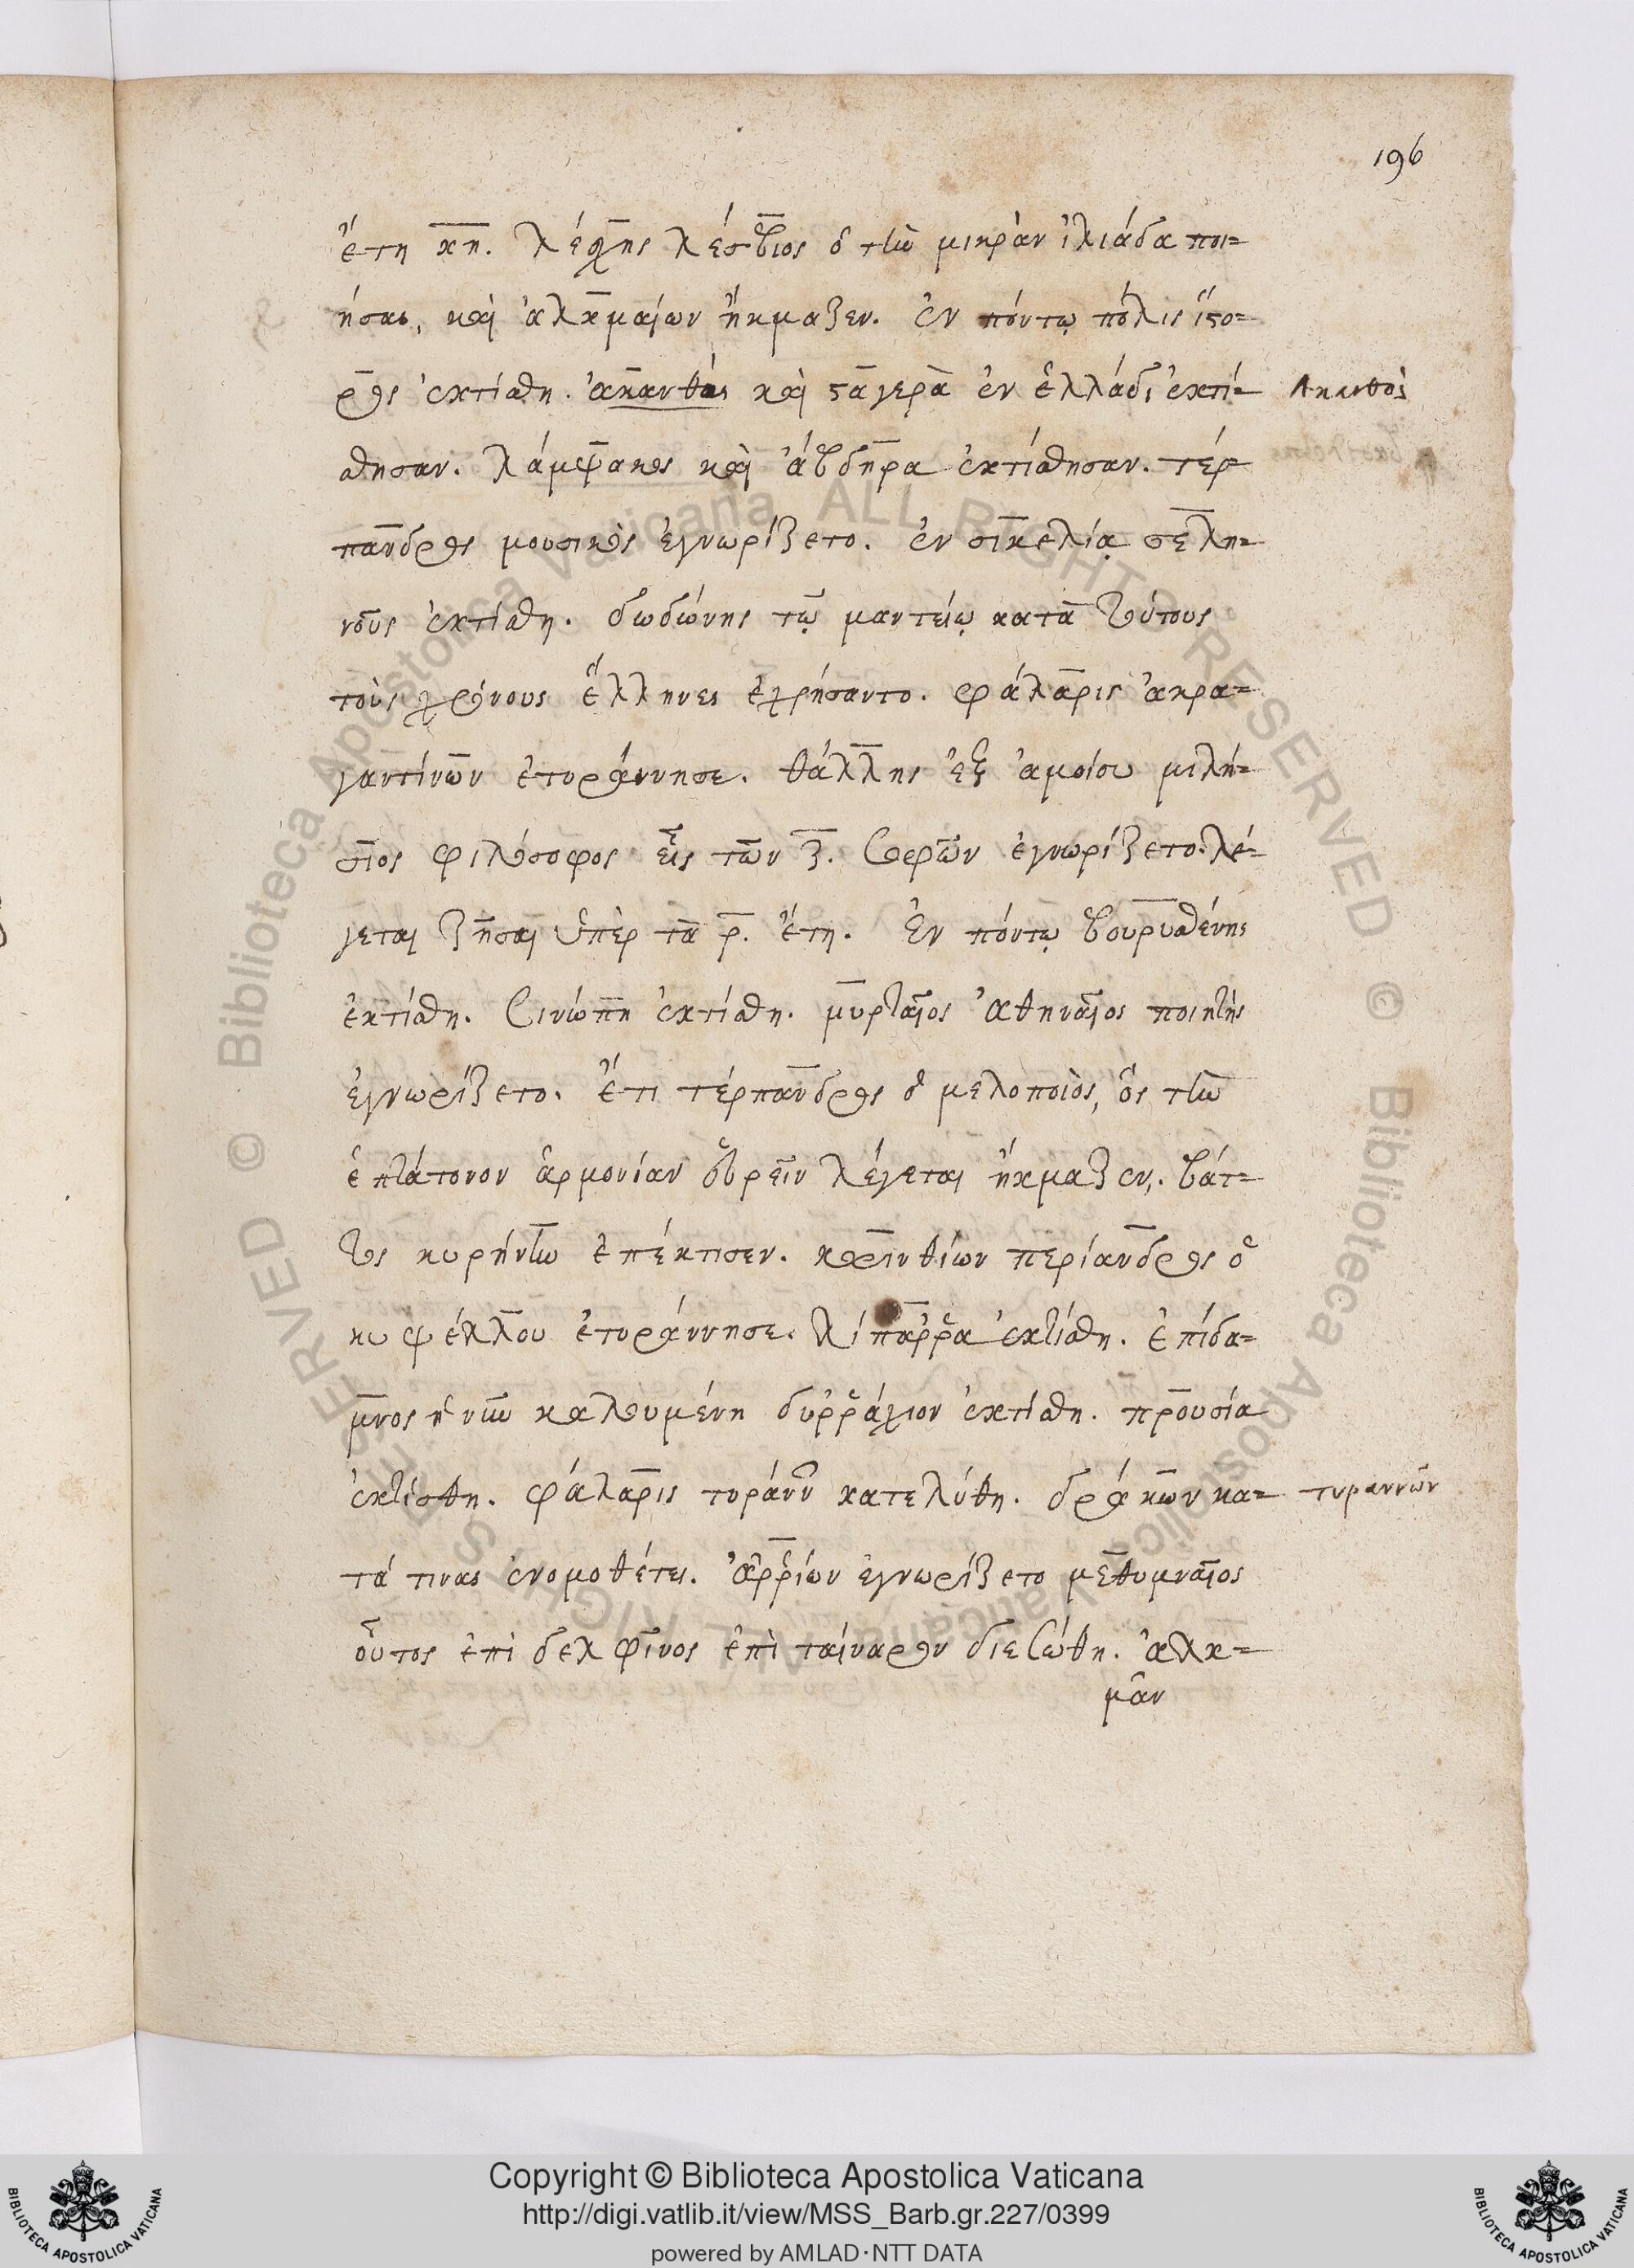 196
ἔτη κη. λέσχης λέσβιος ὁ τὴν μικρὰν ἰλιάδα ποι=
ήσας, καὶ ἀλκμαίων ἤκμαζεν. ἐν πόντῳ πόλις ἵστο=
ρος ἐκτίσθη. ἀκανθὸς καὶ στάγερα ἐν ἑλλάδι ἐκτί=
Ακανθὸς
σθησαν. λάμψακος καὶ ἄβδηρα ἐκτίσθησαν. τέρ=
πανδρος μουσικὸς ἐγνωρίζετο. ἐν σικελίᾳ σελη=
νοῦς ἐκτίσθη. δωδώνης τῷ μαντείῳ κατὰ τούτους
τοὺς χρόνους ἕλληνες ἐχρήσαντο. φάλαρις ἀκρα=
γαντίνων ἐτυράννησε. θάλλης ἐξ ἀμοίσου μιλή=
σιος φιλόσοφος εἷς τῶν ζ. σοφῶν ἐγνωρίζετο. λέ=
γεται ζῆσαι ὑπὲρ τὰ ρ. ἔτη. Ἐν πόντῳ βουρυσθένης
ἐκτίσθη. Σινώπη ἐκτίσθη. μυρταῖος ἀθηναῖος ποιητὴς
ἐγνωρίζετο. ἔτι τέρπανδρος ὁ μελοποιὸς, ὃς τὴν
ἑπτάτονον ἁρμονίαν εὑρεῖν λέγεται ἤκμαζεν. βάτ=
τος κυρήνην ἐπέκτισεν. κορινθίων περίανδρος ὁ
κυψέλλου ἐτυράννησε. λίπαῤῥα ἐκτίσθη. ἐπίδα=
μνος ἡ νῦν καλουμένη δυῤῥάχιον ἐκτίσθη. προυσία
ἐκτίσθη. φάλαρις τυράνν κατελύθη. δράκων κα=
τυραννῶν
τά τινας ἐνομοθέτει. ἀῤῥίων ἐγνωρίζετο μεθυμναῖος
οὗτος ἐπὶ δελφῖνος ἐπὶ ταίναρον διεσώθη. ἀλκ=
μὰν
Copyright © Biblioteca Apostolica Vaticana
http://digi.vatlib.it/view/MSS_Barb.gr.227/0399
powered by AMLAD·NTT DATA